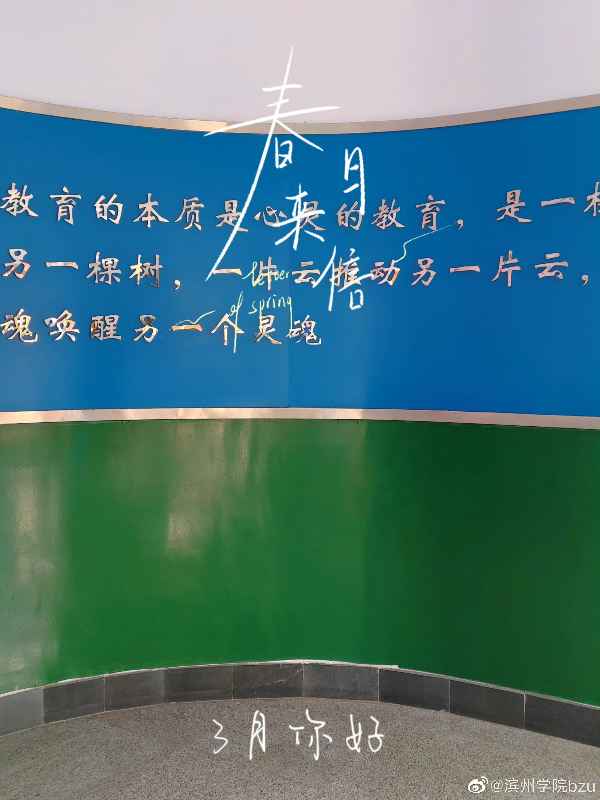 春日来信
letter
of spring
教育的本质是心灵的教育，是一棵
另一棵树，一片云 动另一片云，
魂唤醒另一个灵魂
3月你好
@滨州学院bzu